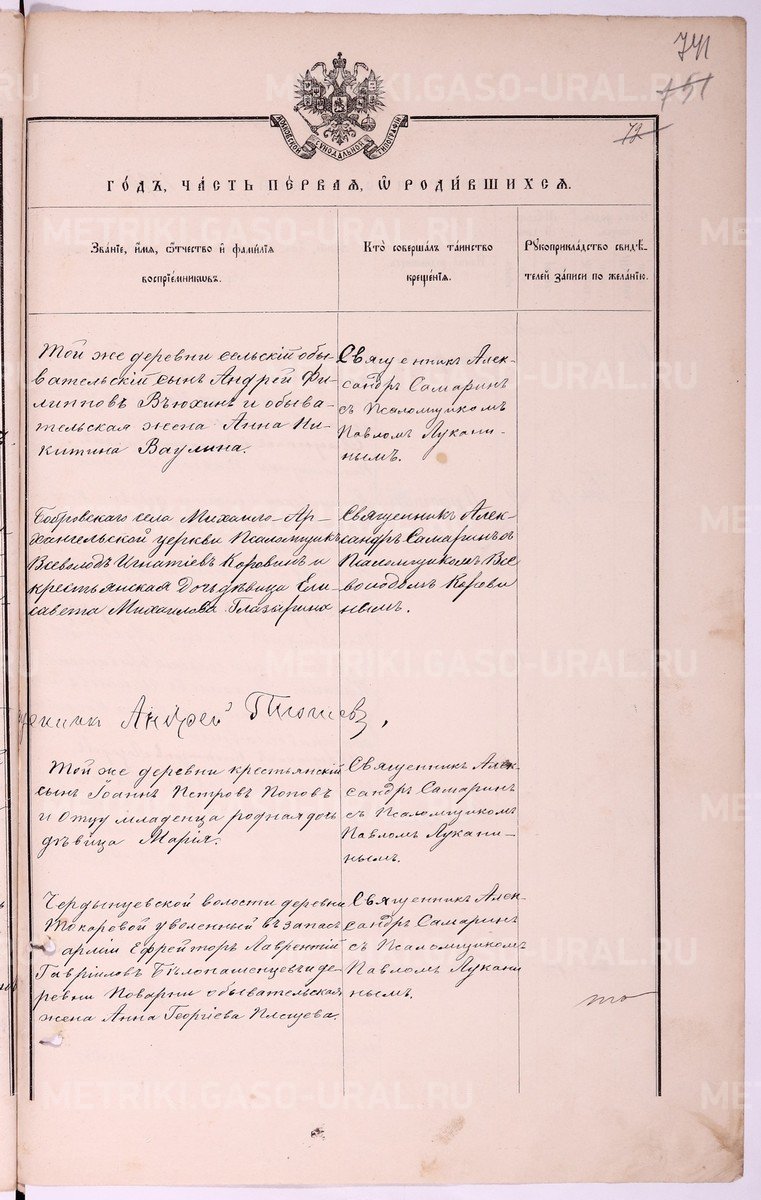 741
751
72
МОСКОВСКОЙ СѴНОДАЛЬНОЙ ТИПОГРАФІИ
ГО́ДЪ, ЧА́СТЬ ПЕ́РВАЯ, Ѡ҆ РОДИ́ВШИХСѦ.
Зва́нїе, и҆́мя, ѻ҆́тчество и҆ фами́лїя
воспрїе́мниковъ.
Кто̀ соверша́лъ та́инство
креще́нїя.
Рꙋкоприкла́дство свидѣ́-
телей за́писи по жела́нїю.
Той же деревни сельскій обы-
вательскій сынъ Андрей Фи-
липповъ Вьюхинъ и обыва-
тельская жена Анна Ни-
китина Ваулина.
Священникъ Алек-
сандръ Самаринъ
съ Псаломщикомъ
Павломъ Лукани-
нымъ.
Бобровскаго села Михаило-Ар-
хангельской церкви Псаломщикъ
Всеволодъ Игнатіевъ Коровинъ и
крестьянская дочь дѣвица Ели-
савета Михаилова Глазарина
Священникъ Алек-
сандръ Самаринъ съ
Псаломщикомъ Все
володомъ Корови
нымъ.
Андрей
Той же деревни крестьянскій
сынъ Іоаннъ Петровъ Поповъ
и Отцу младенца родная дочь
дѣвица Марія.
Священникъ Алек-
сандръ Самаринъ
съ Псаломщикомъ
Павломъ Лукани-
нымъ.
Чердынцевской волости деревни
Токаровой уволенный въ запасъ
арміи Ефрейторъ Лаврентій
Гавріиловъ Бѣлопашенцевъ и де-
ревни Поварни обывательская
жена Анна Георгіева Плещева.
Священникъ Алек-
сандръ Самаринъ
съ Псаломщикомъ
Павломъ Лукани
нымъ.